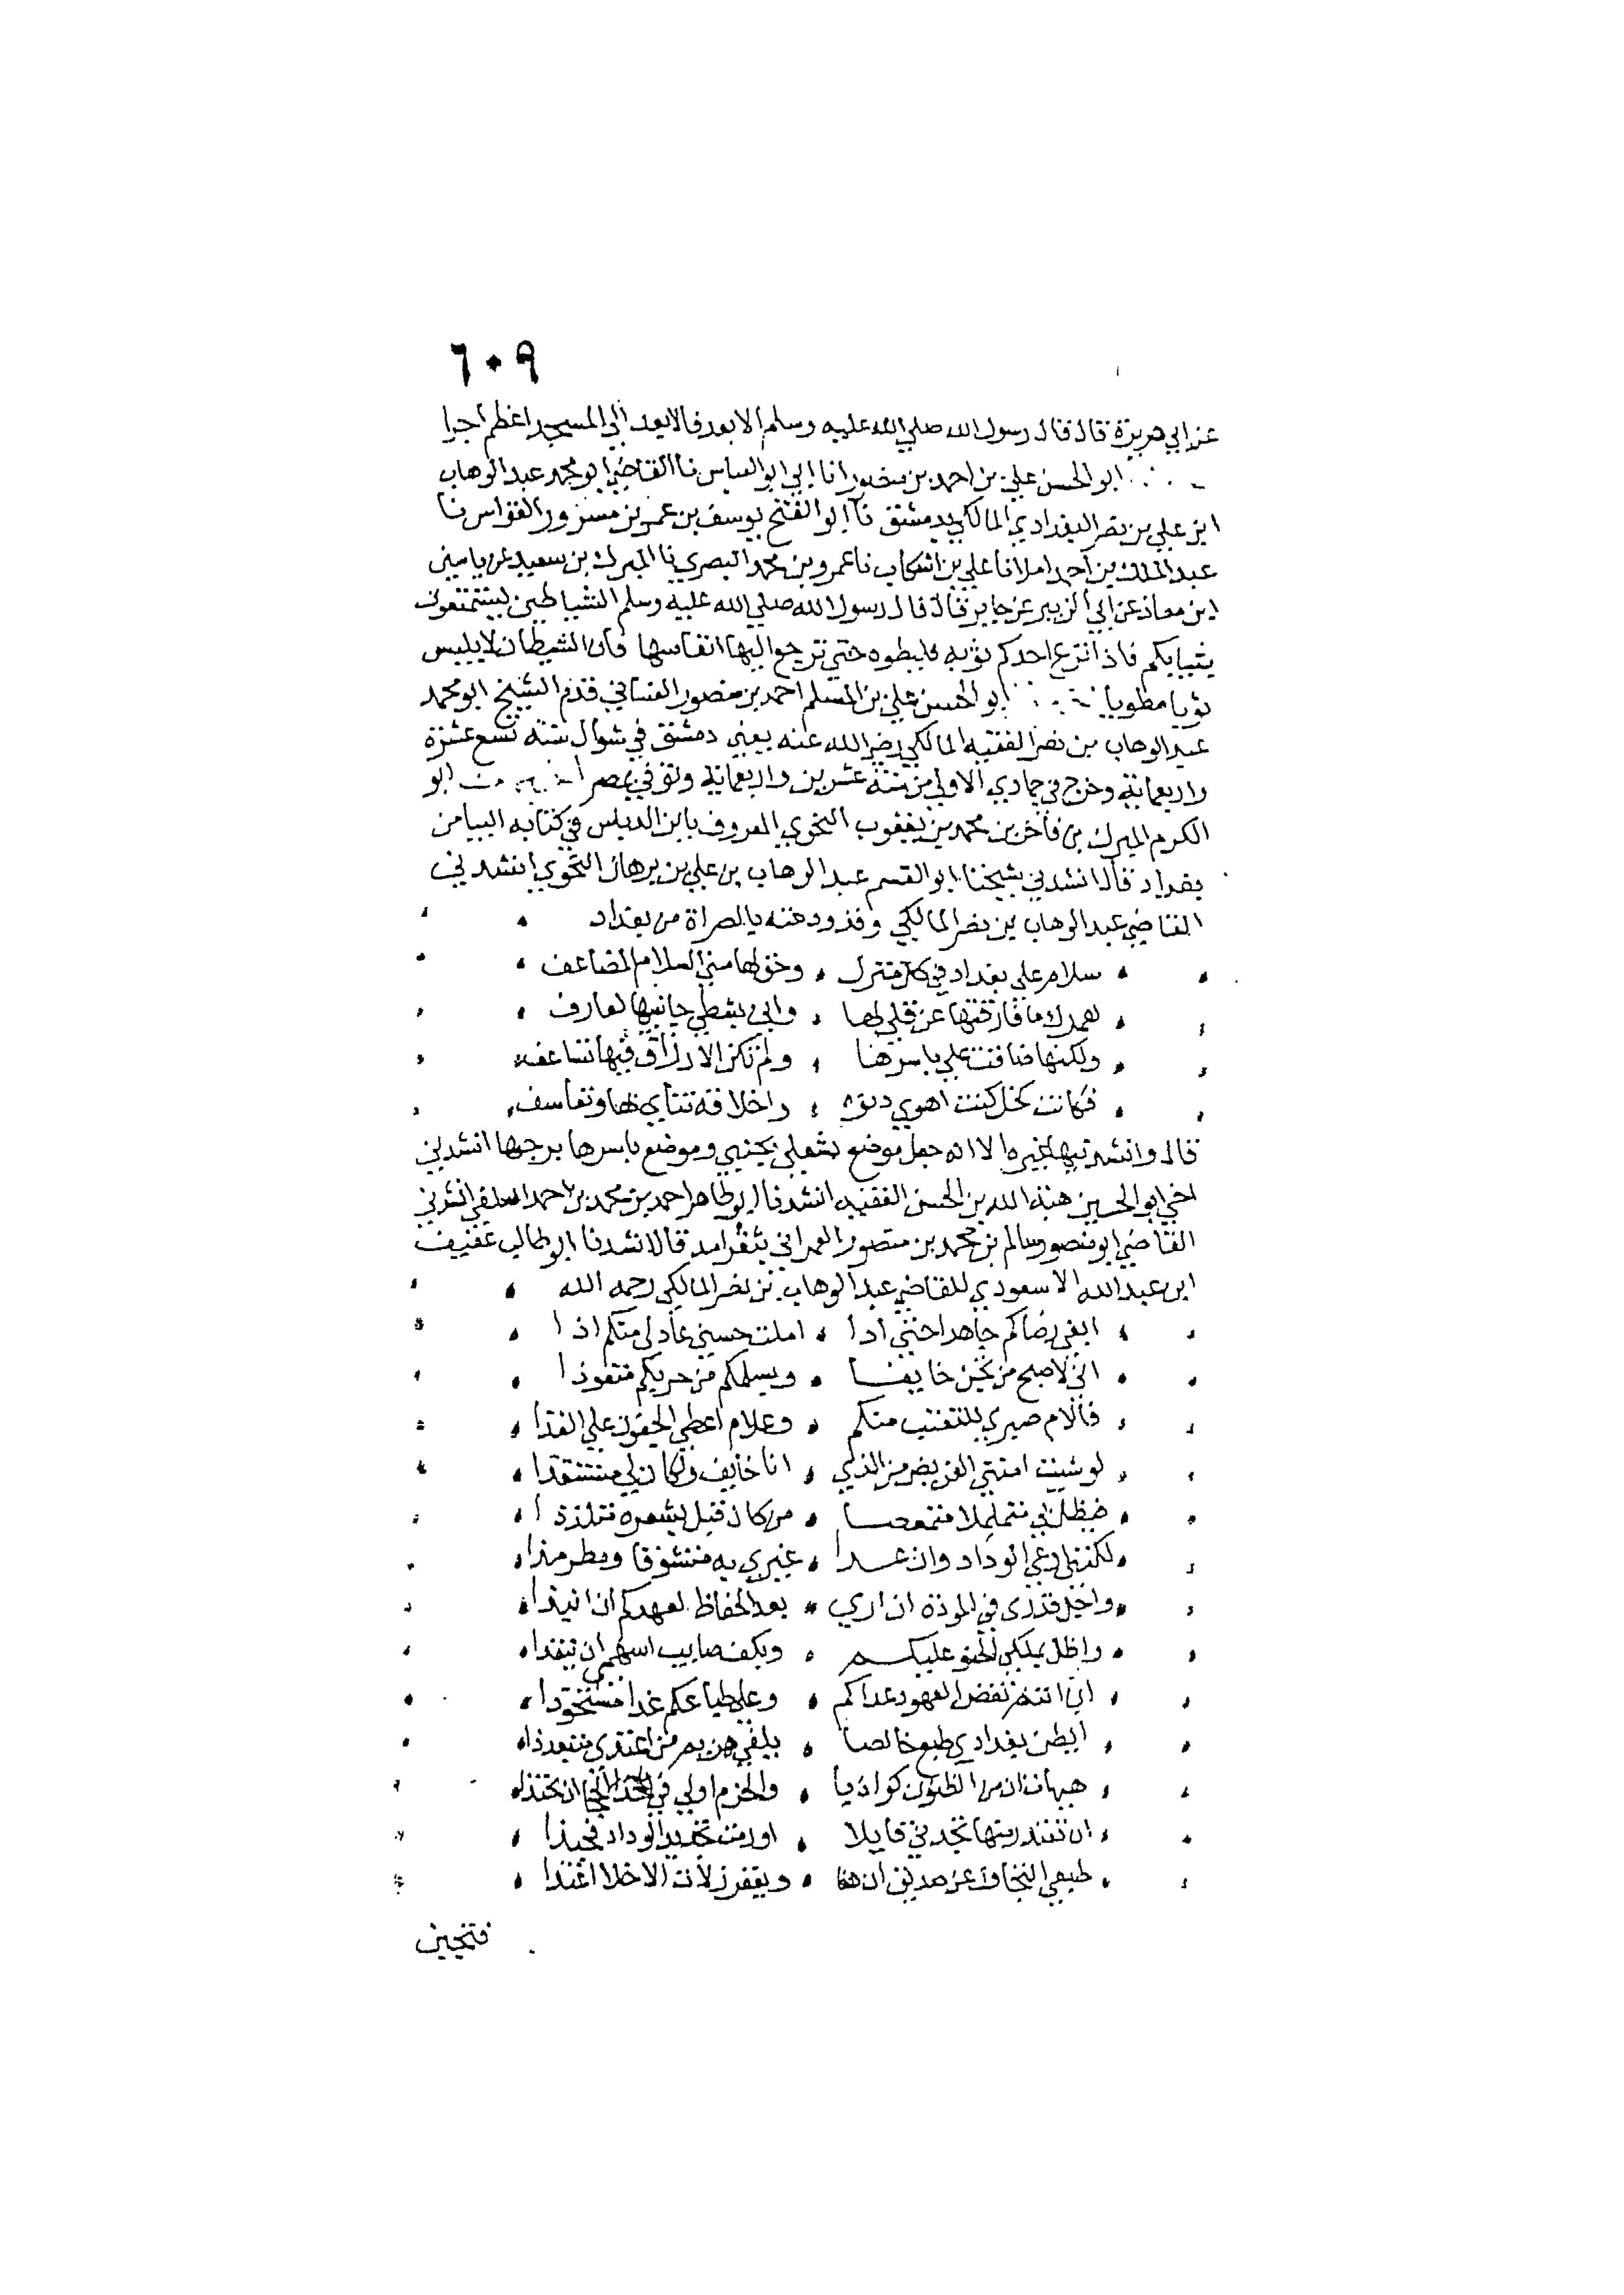 ٦٠٩
عن ابي هريرة قال قال رسول الله صلي الله عليه وسلم الابعد فالابعد الي المسجد اعظم اجرا
ابو الحسن علي بن احمد بن منصور انا ابي ابو العباس نا القاضي ابو محمد عبد الوهاب
ابن علي بن نصر البغدادي المالكي بدمشق نا ابو الفتح يوسف بن عمر بن مسرور القواس نا
عبد الملك بن احمد املا نا علي بن اشكاب نا عمرو بن محمد البصري نا المبرك بن سعيد عن ياسين
ابن معاذ عن ابي الزبير عن جابر قال قال رسول الله صلي الله عليه وسلم الشياطين يستمتعون
بثيابكم فاذا نزع احدكم ثوبه فليطوه حتي ترجع اليها انفاسها فان الشيطان لا يلبس
ثوبا مطويا ابو الحسن علي بن المسلم احمد بن منصور الغساني قدم الشيخ ابو محمد
عبد الوهاب بن نصر الفقيه المالكي رضي الله عنه يعني دمشق في شوال سنه تسع عشرة
واربعمائة وخرج في جمادي الاولي من سنة عشرين واربعمائة وتوفي بمصر ابو
الكرم المبرك بن فاخر بن محمد بن يعقوب النحوي المعروف بابن الدباس في كتابه اليبا من
بغداد قال انشدني شيخنا ابو القسم عبد الوهاب بن علي بن برهان النحوي انشدني
القاضي عبد الوهاب بن نصر المالكي وقد ودعته بالصراة من بغداد
سلام علي بغداد في كل منزل وحق لها مني السلام المضاعف
لعمرك ما فارقتها عن قلي لها واني بشطي جانبيها لعارف
ولكنها ضاقت علي باسرها ولم تكن الارزاق فيها تساعف
فكانت كخل كنت اهوي دنوه واخلاقه تنأي بها وتعاسف
قال وانشدنيها غيره الا انه جعل موضع بشطي بجنبي وموضع باسرها برحبها انشدني
اخي ابو الحسين هبة الله بن الحسن الفقيه انشدنا ابو طاهر احمد بن محمد بن احمد السلفي انشدني
القاضي ابو منصور سالم بن محمد بن منصور العمراني بثغر امد قال انشدنا ابو طالب عفيف
ابن عبد الله الاسعردي للقاضي عبد الوهاب بن نصر المالكي رحمه الله
ابغي رضاكم جاهدا حتي اذا املت حسني عاد لي منكم اذا
اني لاصبح من تجن خايفا وبسلمكم من حربكم متعوذا
فالام صبري للتعتب منكم وعلام اغضي الجفون علي القذا
لو شيت امنني القريض من الذي انا خايف ولكان لي مستنقذا
فيظل بي متململا متمعصا من كان قبل بشعره متلذذا
لكنني ارعي الوداد وان غدا غيري به متشوقا ومطرمذا
واجل قدري في المودة ان اري بعد الحفاظ لعهدكم ان انبذا
واظل يملكني لحنو عليكم ويكف صايب اسهمي ان تنفذا
اني انتخر نقض العهود عداكم وعلي طباعكم غدا مستحوذا
ايظن بغدادي طبع خالصا يلفي من اغتدي متبغدذا
هيهات ان من الظنون كواذبا والحزم اولي في ان يحتذا
ان تندرستها تجدني قايلا او رمت تجديد الوداد فحبذا
طبعي التجاوز عن صديق ان هفا وبغفر زلات الاخلا اغتذا
فتجبن